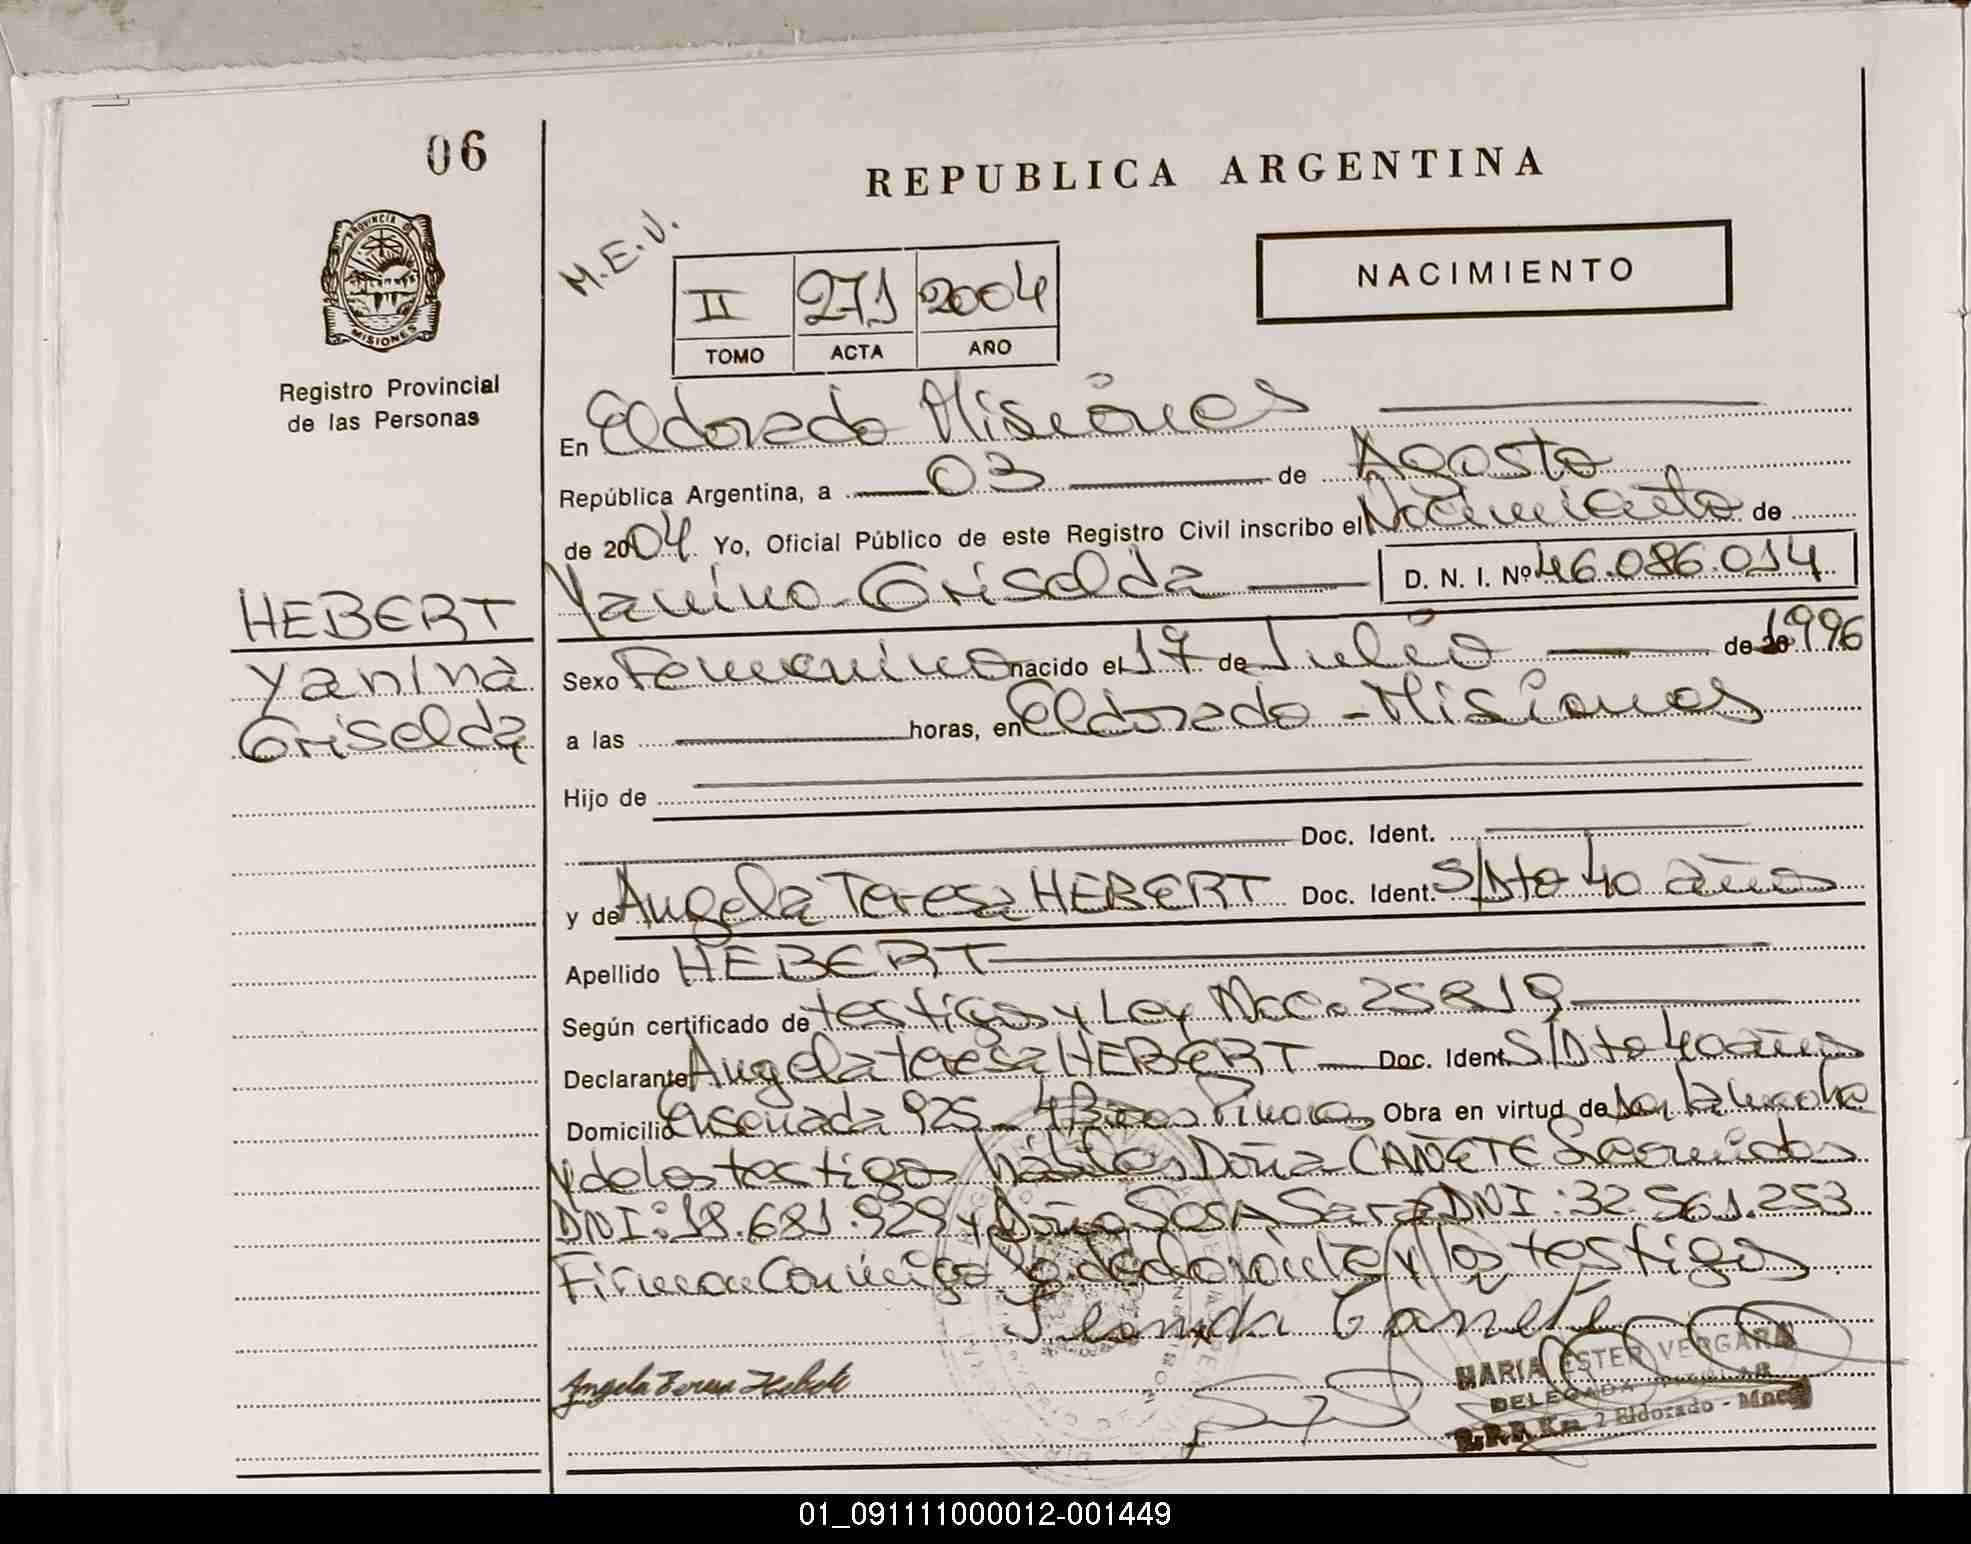 06
REPUBLICA ARGENTINA
M.E.J.
NACIMIENTO
II 271 2004
TOMO ACTA AÑO
PROVINCIA DE
MISIONES
Registro Provincial
de las Personas
En Eldorado Misiones
República Argentina, a 03 de Agosto
de 2004 Yo, Oficial Público de este Registro Civil inscribo el Nacimiento de
Yanina Griselda D. N. I. Nº 46.086.014
HEBERT
Yanina
Griselda
Sexo Femenino nacido el 17 de Julio de 1996
a las horas, en Eldorado - Misiones
Hijo de
Doc. Ident.
y de Angela Teresa HEBERT Doc. Ident. S/Dto 40 años
Apellido HEBERT
Según certificado de testigos y Ley Nac. 25819
Declarante Angela Teresa HEBERT Doc. Ident. S/Dto 40 años
Domicilio Ensenada 925 Obra en virtud de
y de los testigos hábiles Doña CAÑETE Leonidas
DNI: 18.681.929 y Doña SOSA Sara DNI: 32.561.253
Firman conmigo la declarante y los testigos
Angela Teresa Hebert
MARIA ESTER VERGARA
DELEGADA TITULAR
R.P.P. Km. 2 Eldorado - Mnes
01_091111000012-001449